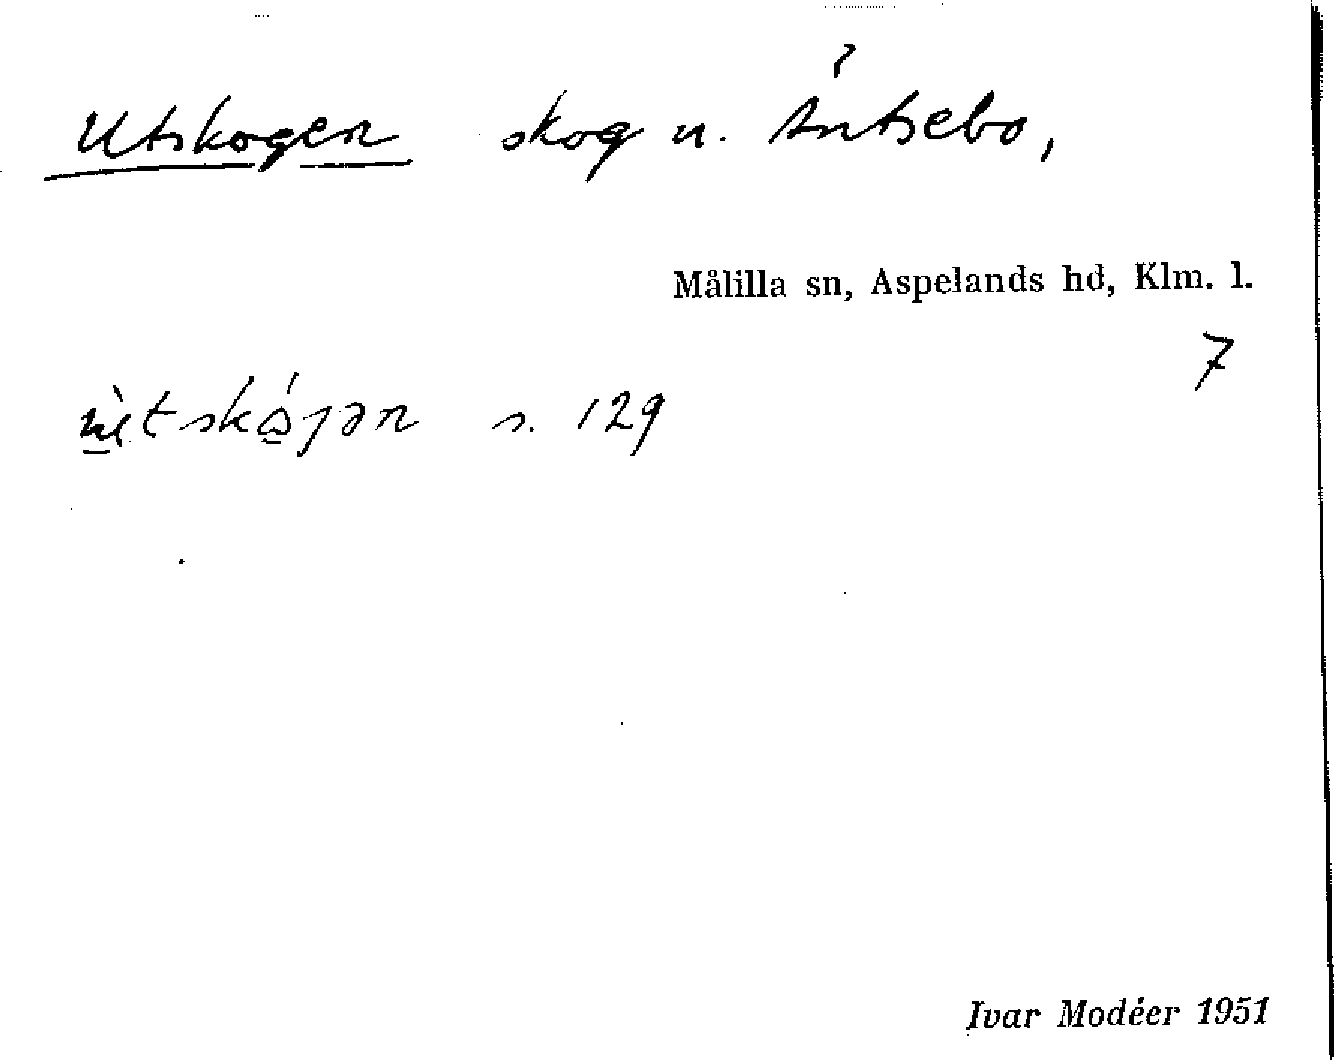 Utskogen skog u. Äntsebo,
Målilla sn, Aspelands hd, Klm. l.
7
s. 129
Ivar Modéer 1951